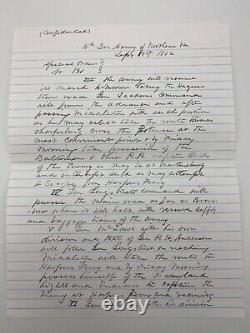 (Confidential)
Hd Qrs Army of Northern Va
Sept 9th 1862
Special Orders }
No 191 }
III The Army will resume
its march tomorrow taking the Hagers
town road Gen Jacksons Command
will form the advance and after
passing Middletown with such portion
as he may select take the route toward
Sharpsburg cross the Potomac at the
most convenient point & by Friday
morning take possession of the
Baltimore & Ohio R.R. capture such
of the Enemy as may be at Martinsburg
and intercept such as may attempt
to Escape from Harpers Ferry
IV Gen Longstreets Command will
pursue the main road as far as Boons
boro where it will halt with reserve supply
and baggage trains of the army
V Gen McLaws with his own
division and that of Gen R.H. Anderson
will follow Gen Longstreet on reaching
Middletown will take the route to
Harpers Ferry and by Friday morning
possess himself of the Maryland
heights and Endeavor to capture the
Enemy at Harpers Ferry and vicinity
VI Gen